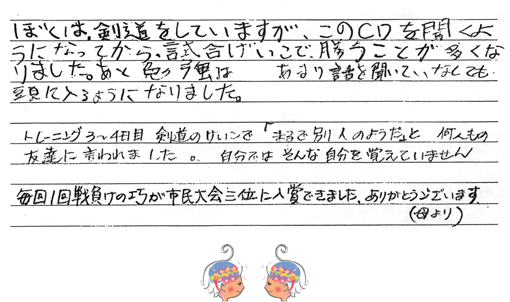 ぼくは、剣道をしていますが、このCDを聞くよ
うになってから、試合げいこで、勝うことが多くな
りました。あと 勉強は あまり話を聞いていなくても
頭に入るようになりました。
トレーニング3~4日目 剣道のけいこで「まるで別人のようだ」と 何人もの
友達に言われました。 自分ではそんな自分を覚えていません
毎回1回戦負けの巧が市民大会三位に入賞できました。ありがとうございます。
(母より)